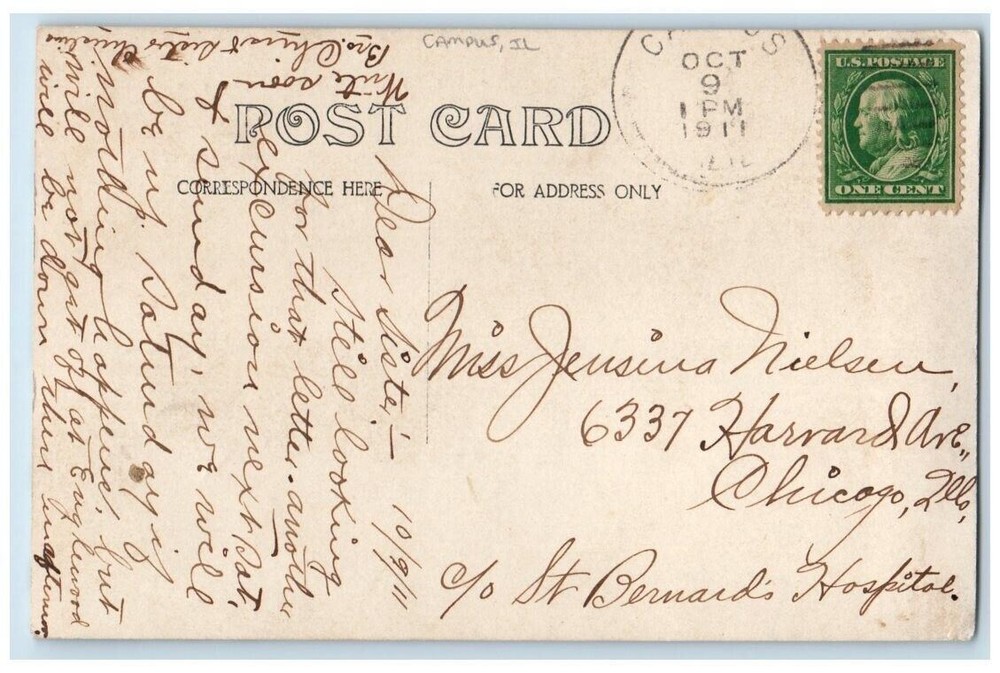 CAMPUS, IL
CAMPUS
OCT
9
1 PM
1911
ILL.
U.S. POSTAGE
ONE CENT
POST CARD
CORRESPONDENCE HERE
FOR ADDRESS ONLY
10/9/11
Dear Sister,—
Still looking
for that letter. another
excursion next Sat,
& Sunday, we will
be up Saturday if
nothing happens, but
will not get off at Englewood
will be down there in afternoon.
Write soon
Bro. & Sister
Miss Jensina Nielsen,
6337 Harvard Ave.,
Chicago, Ills,
c/o St Bernard's Hospital.